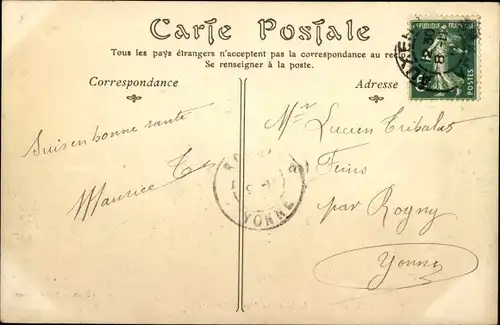 Carte Postale
Tous les pays étrangers n'acceptent pas la correspondance au
Se renseigner à la poste.
Correspondance
Adresse
REPUBLIQUE FRANÇAISE
POSTES
Suis en bonne santé
Maurice T
Mr Lucien Tribalat
Feins
par Rogny
Yonne
YONNE